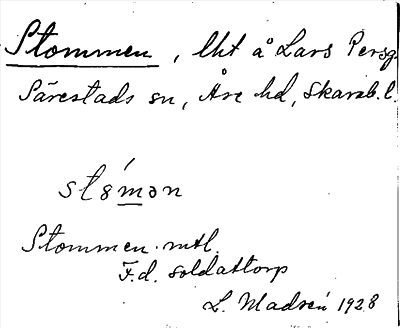 Stommen, lht å Lars Persg.
Särestads sn, Åse hd, Skarab. l.
stómən
Stommen. mtl.
F.d. soldattorp
L. Madsén 1928